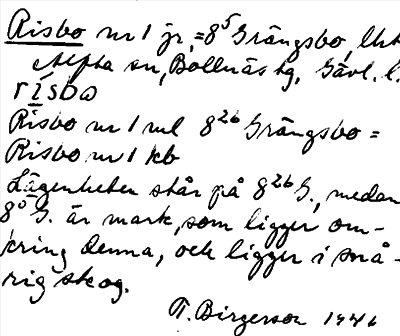 Risbo nr 1 jr, = 8⁵ Grängsbo,
Alfta sn, Bollnäs tg, Gävl. l.
rísbω
Risbo nr 1 ml 8²⁶ Grängsbo =
Risbo nr 1 kb
Lägenheten står på 8²⁶ G., medan
8⁵ G. är mark, som ligger om-
kring denna, och ligger i små-
rig skog.
T. Birgerson 1946